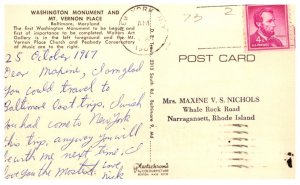 WASHINGTON MONUMENT AND
MT. VERNON PLACE
Baltimore, Maryland
The first Washington Monument to be League and
first of importance to be completed. Walters Art
Gallery is in the left foreground and the Mt.
Vernon Place Church and Peabody Conservatory
of Music are to the right.
25 October 1967
Dear Maxine, I'm glad
you could travel to
Baltimore last trip. I wish
you had come to New York
this trip, anyway you will
be with me next time, I
love you the Mostest. Love,
Nick
MORE
AM
75 2
D.E. Traub, 2321 South Rd., Baltimore 9, Md.
POST CARD
Mrs. MAXINE V. S. NICHOLS
Whale Rock Road
Narragansett, Rhode Island
Plastichrome